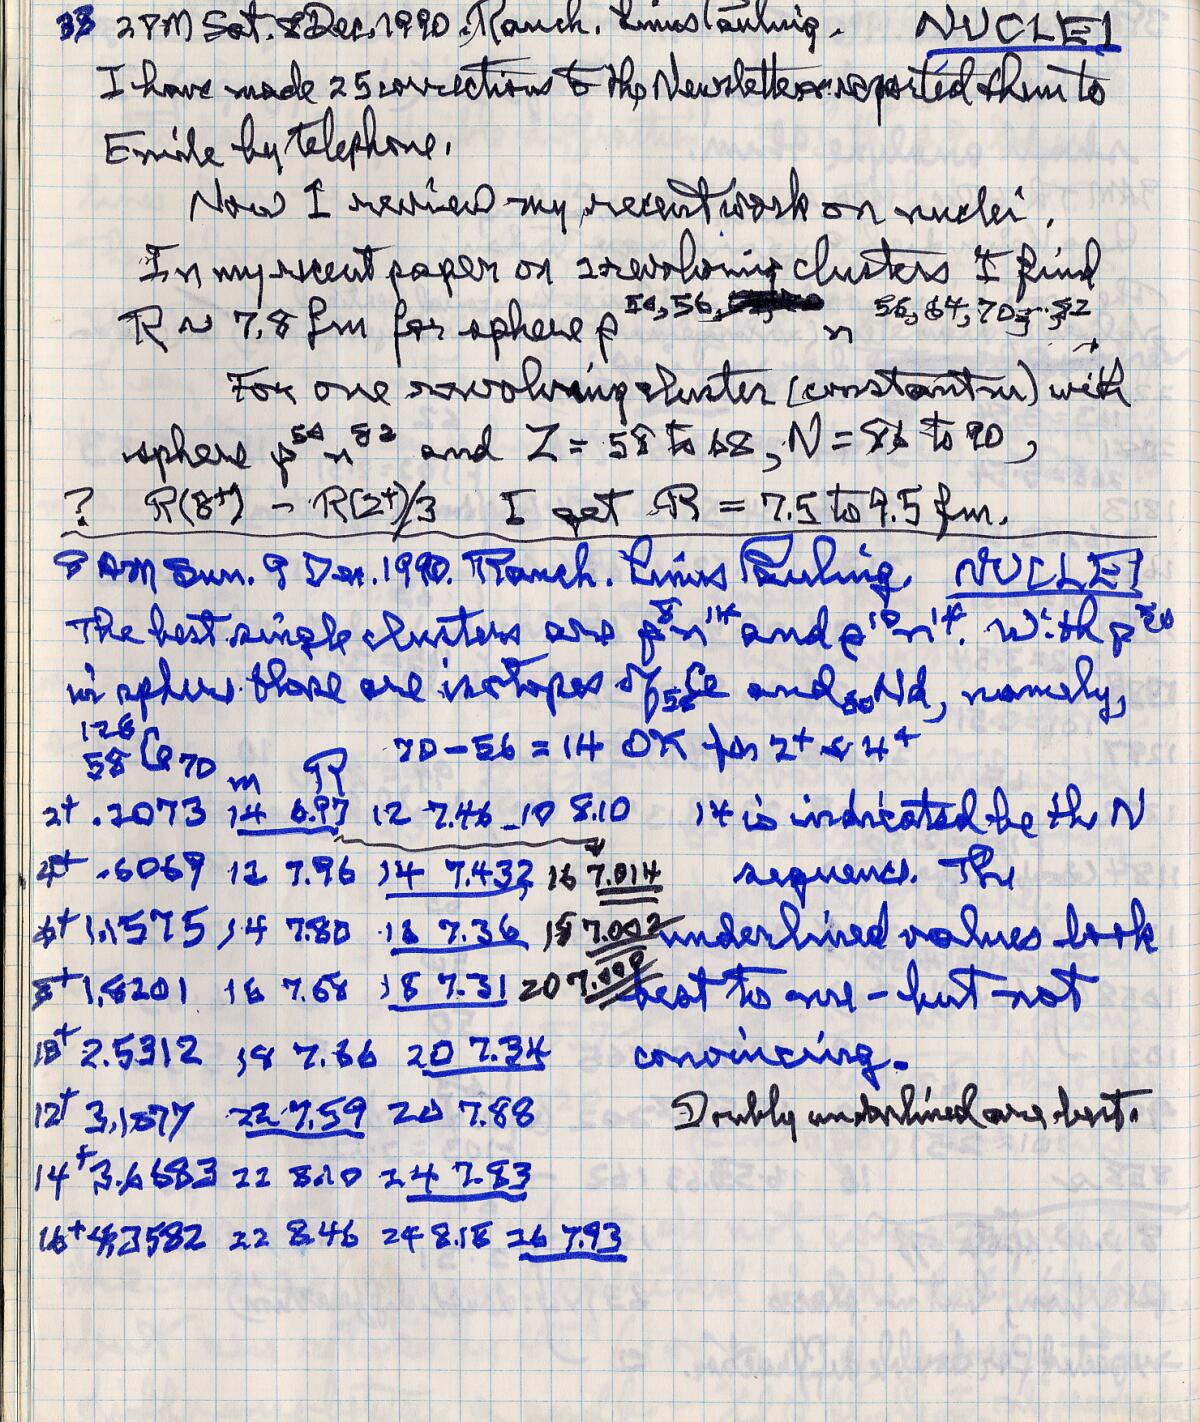 38 2 PM Sat. 8 Dec. 1990. Ranch. Linus Pauling. NUCLEI
I have made 25 corrections to the Newsletter & reported them to
Emile by telephone.
Now I review my recent work on nuclei.
In my recent paper on revolving clusters I find
R ~ 7.8 fm for sphere p 50, 56, n 56, 64, 70, ... 82
For one revolving cluster (constant m) with
sphere p⁵⁰ n⁸² and Z = 58 to 68, N = 86 to 90,
? R(8⁺) - R(2⁺)/3 I get R = 7.5 to 9.5 fm.
8 AM Sun. 9 Dec. 1990. Ranch. Linus Pauling. NUCLEI
The best single clusters are p⁸n¹⁴ and p¹⁰n¹⁴. With p⁵⁰
in sphere those are isotopes of ₅₈Ce and ₆₀Nd, namely,
128 58 Ce 70 70-56 = 14 OK for 2⁺ & 4⁺
m R
2⁺ .2073 14 6.97 12 7.46 10 8.10 14 is indicated by the N
4⁺ .6069 12 7.96 14 7.432 16 7.014 sequence. The
6⁺ 1.1575 14 7.80 16 7.36 18 7.002 underlined values look
8⁺ 1.8201 16 7.68 18 7.31 20 best to me - but not
10⁺ 2.5312 18 7.66 20 7.34 convincing.
12⁺ 3.1877 22 7.59 20 7.88 Doubly underlined are best.
14⁺ 3.6683 22 8.10 24 7.83
16⁺ 4.3582 22 8.46 24 8.18 26 7.93